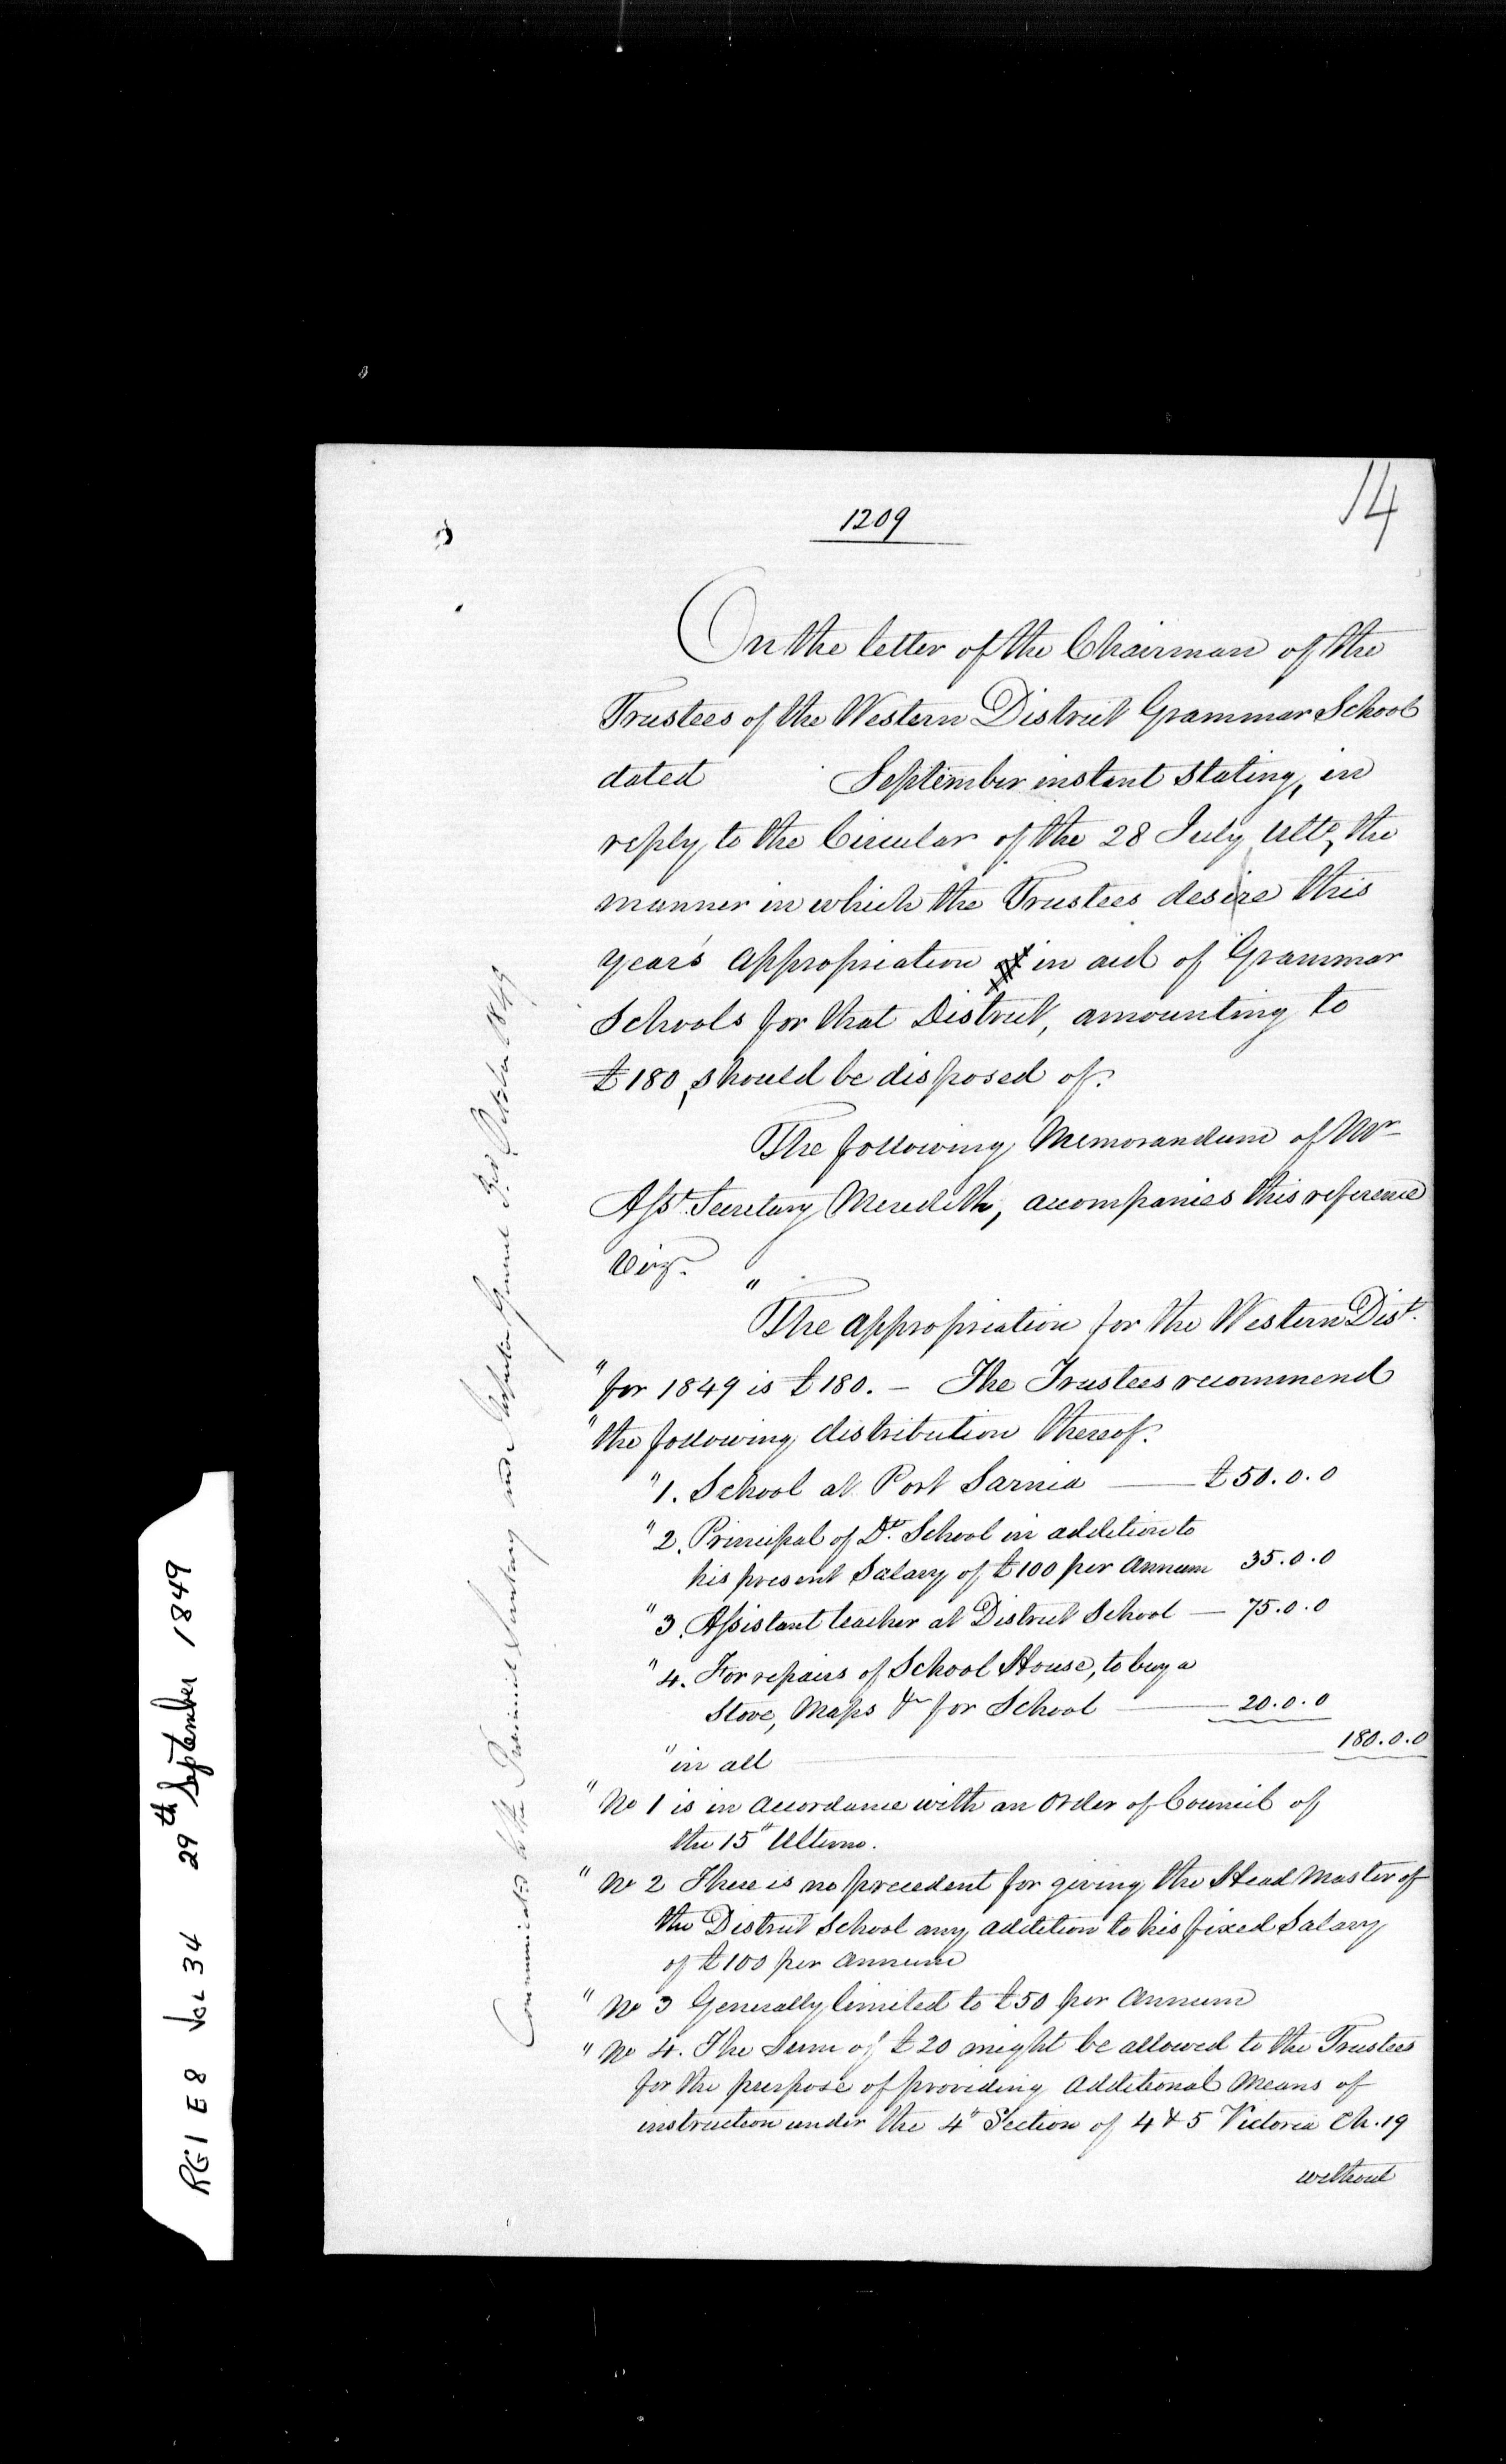 14
1209
On the letter of the Chairman of the
Trustees of the Western District Grammar School
dated September instant stating, in
reply to the Circular of the 28 July Ulto, the
manner in which the Trustees desire this
year's appropriation in aid of Grammar
Schools for that District, amounting to
£180, should be disposed of.
The following Memorandum of Mr
Asst. Secretary Meredith, accompanies this reference
Viz.
"
The appropriation for the Western Dist.
" for 1849 is £180. – The Trustees recommend
" the following distribution thereof.
" 1. School at Port Sarnia — £50.0.0
" 2. Principal of Dt. School in addition to
his present Salary of £100 per annum 35.0.0
" 3. Assistant teacher at District School — 75.0.0
" 4. For repairs of School House, to buy a
Stove, Maps &c for School — 20.0.0
" in all — 180.0.0
" No 1 is in accordance with an Order of Council of
the 15th Ultimo.
" No 2 There is no precedent for giving the Head Master of
the District School any addition to his fixed Salary
of £100 per annum
" No 3 Generally limited to £50 per Annum
" No 4. The Sum of £20 might be allowed to the Trustees
for the purpose of providing additional Means of
instruction under the 4th Section of 4 & 5 Victoria Ch. 19
without
Communicated to the Provincial Secretary and Inspector General 3rd October 1849
RG1 E8 Vol 34 29th September 1849